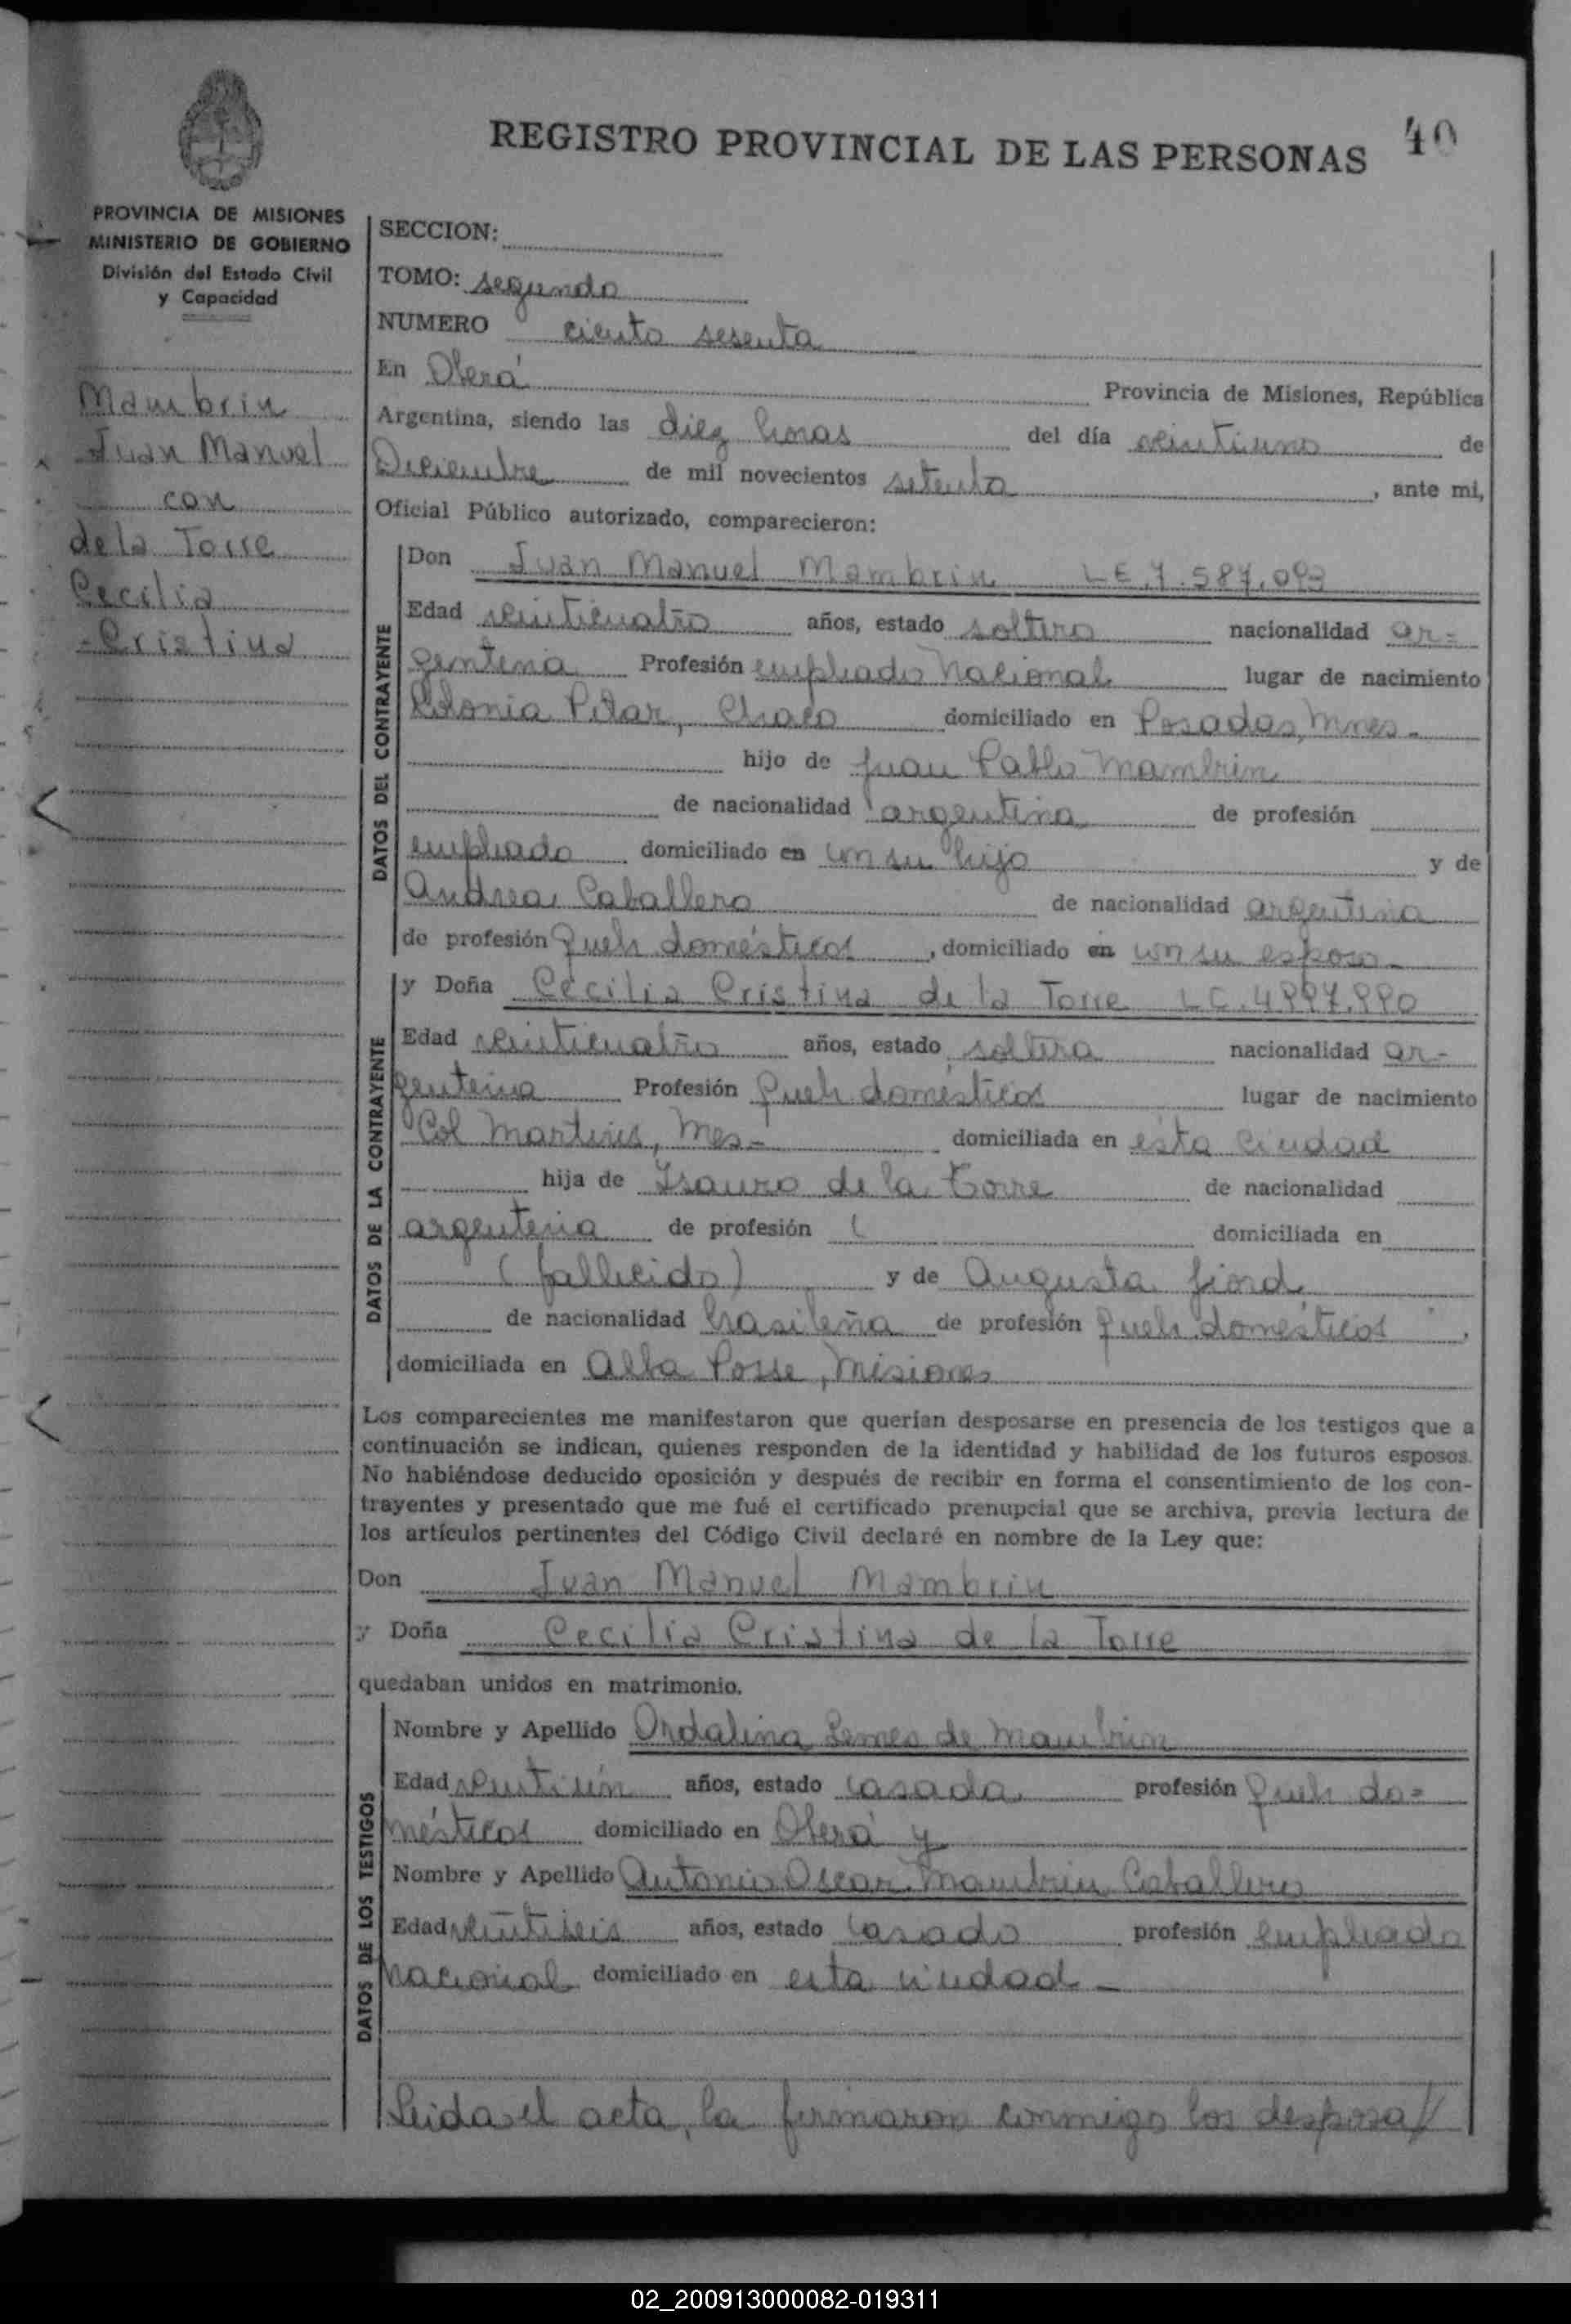 REGISTRO PROVINCIAL DE LAS PERSONAS
40
PROVINCIA DE MISIONES
MINISTERIO DE GOBIERNO
División del Estado Civil
y Capacidad
Mambrin
Juan Manuel
con
de la Torre
Cecilia
-Cristina
SECCION:
TOMO: segundo
NUMERO ciento sesenta
En Oberá Provincia de Misiones, República
Argentina, siendo las diez horas del día veintiuno de
Diciembre de mil novecientos setenta, ante mi,
Oficial Público autorizado, comparecieron:
DATOS DEL CONTRAYENTE
Don Juan Manuel Mambrin LE.7.587.093
Edad veinticuatro años, estado soltero nacionalidad ar=
gentina Profesión empleado Nacional lugar de nacimiento
Colonia Pilar, Chaco domiciliado en Posadas, Mnes.
hijo de Juan Pablo Mambrin
de nacionalidad argentina de profesión
empleado domiciliado en con su hijo y de
Andrea Caballero de nacionalidad argentina
de profesión Queh. domésticos, domiciliado en con su esposo-
DATOS DE LA CONTRAYENTE
y Doña Cecilia Cristina de la Torre LC.4.997.990
Edad veinticuatro años, estado soltera nacionalidad ar-
gentina Profesión Queh domésticos lugar de nacimiento
Col Martires, Mes- domiciliada en esta ciudad
hija de Isauro de la Torre de nacionalidad
argentina de profesión ( domiciliada en
(fallecido) y de Augusta
de nacionalidad brasileña de profesión Queh domésticos,
domiciliada en Alba Posse, Misiones
Los comparecientes me manifestaron que querían desposarse en presencia de los testigos que a
continuación se indican, quienes responden de la identidad y habilidad de los futuros esposos.
No habiéndose deducido oposición y después de recibir en forma el consentimiento de los con-
trayentes y presentado que me fué el certificado prenupcial que se archiva, previa lectura de
los artículos pertinentes del Código Civil declaré en nombre de la Ley que:
Don Juan Manuel Mambrin
y Doña Cecilia Cristina de la Torre
quedaban unidos en matrimonio.
DATOS DE LOS TESTIGOS
Nombre y Apellido Ordalina Lemes de Mambrin
Edad veintiún años, estado casada profesión Queh do=
mésticos domiciliado en Oberá y
Nombre y Apellido Antonio Oscar Mambrin Caballero
Edad veintiseis años, estado casado profesión empleado
nacional domiciliado en esta ciudad -
Leida el acta, la firmaron conmigo los desposa//
02_200913000082-019311